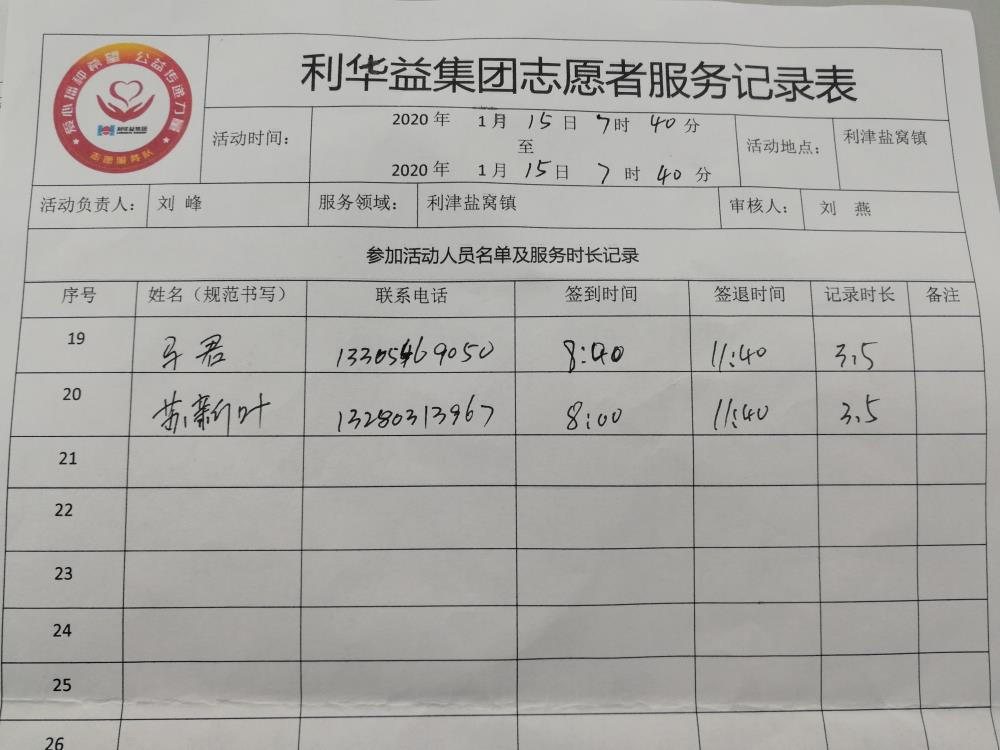 爱心播种希望 公益传递力量
利华益集团
志愿服务队
利华益集团志愿者服务记录表
活动时间：
2020 年 1 月 15 日 7 时 40 分
至
2020 年 1 月 15 日 7 时 40 分
活动地点：
利津盐窝镇
活动负责人： 刘 峰 服务领域： 利津盐窝镇 审核人： 刘 燕
参加活动人员名单及服务时长记录
序号 姓名（规范书写） 联系电话 签到时间 签退时间 记录时长 备注
19 君 13305469050 8:40 11:40 3.5
20 苏新叶 13280313967 8:00 11:40 3.5
21
22
23
24
25
26